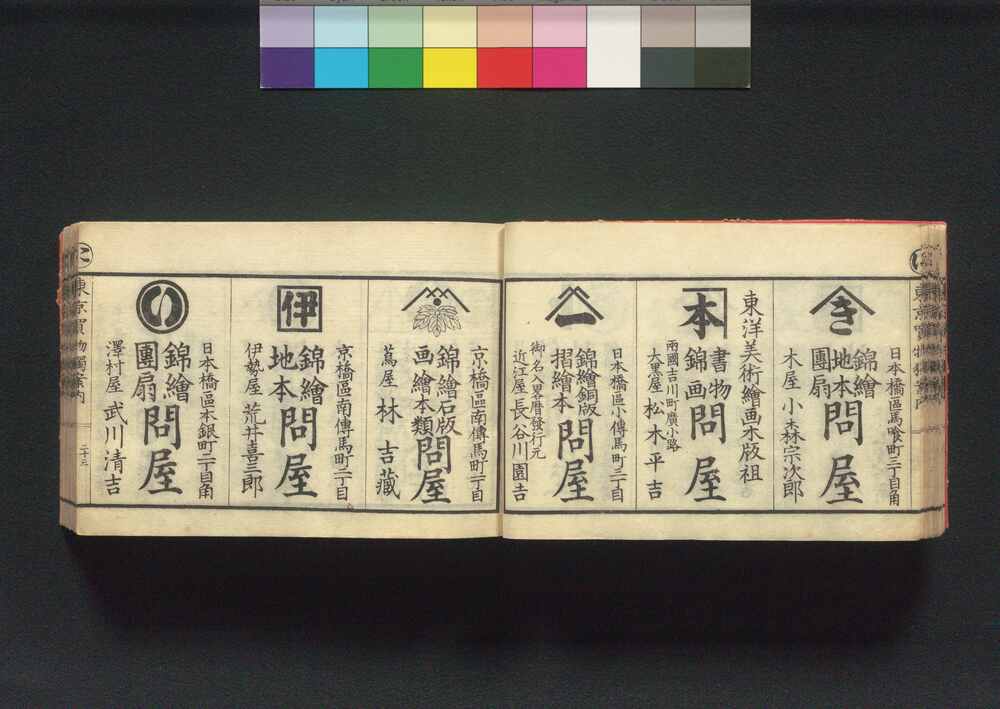 日本橋區馬喰町三丁目角
き
錦繪
地本
團扇
問屋
木屋 小森宗次郎
東洋美術繪画木版祖
本
書物
錦画
問屋
兩國吉川町廣小路
大黒屋 松木平吉
日本橋區小傳馬町三丁目
一
錦繪銅版
摺繪本
問屋
御名入畧暦發行元
近江屋 長谷川園吉
京橋區南傳馬町二丁目
錦繪石版
画繪本類
問屋
蔦屋 林吉藏
京橋區南傳馬町二丁目
伊
錦繪
地本
問屋
伊勢屋 荒井喜三郎
日本橋區本銀町二丁目角
い
錦繪
團扇
問屋
澤村屋 武川清吉
に
東京買物獨案内
二十三